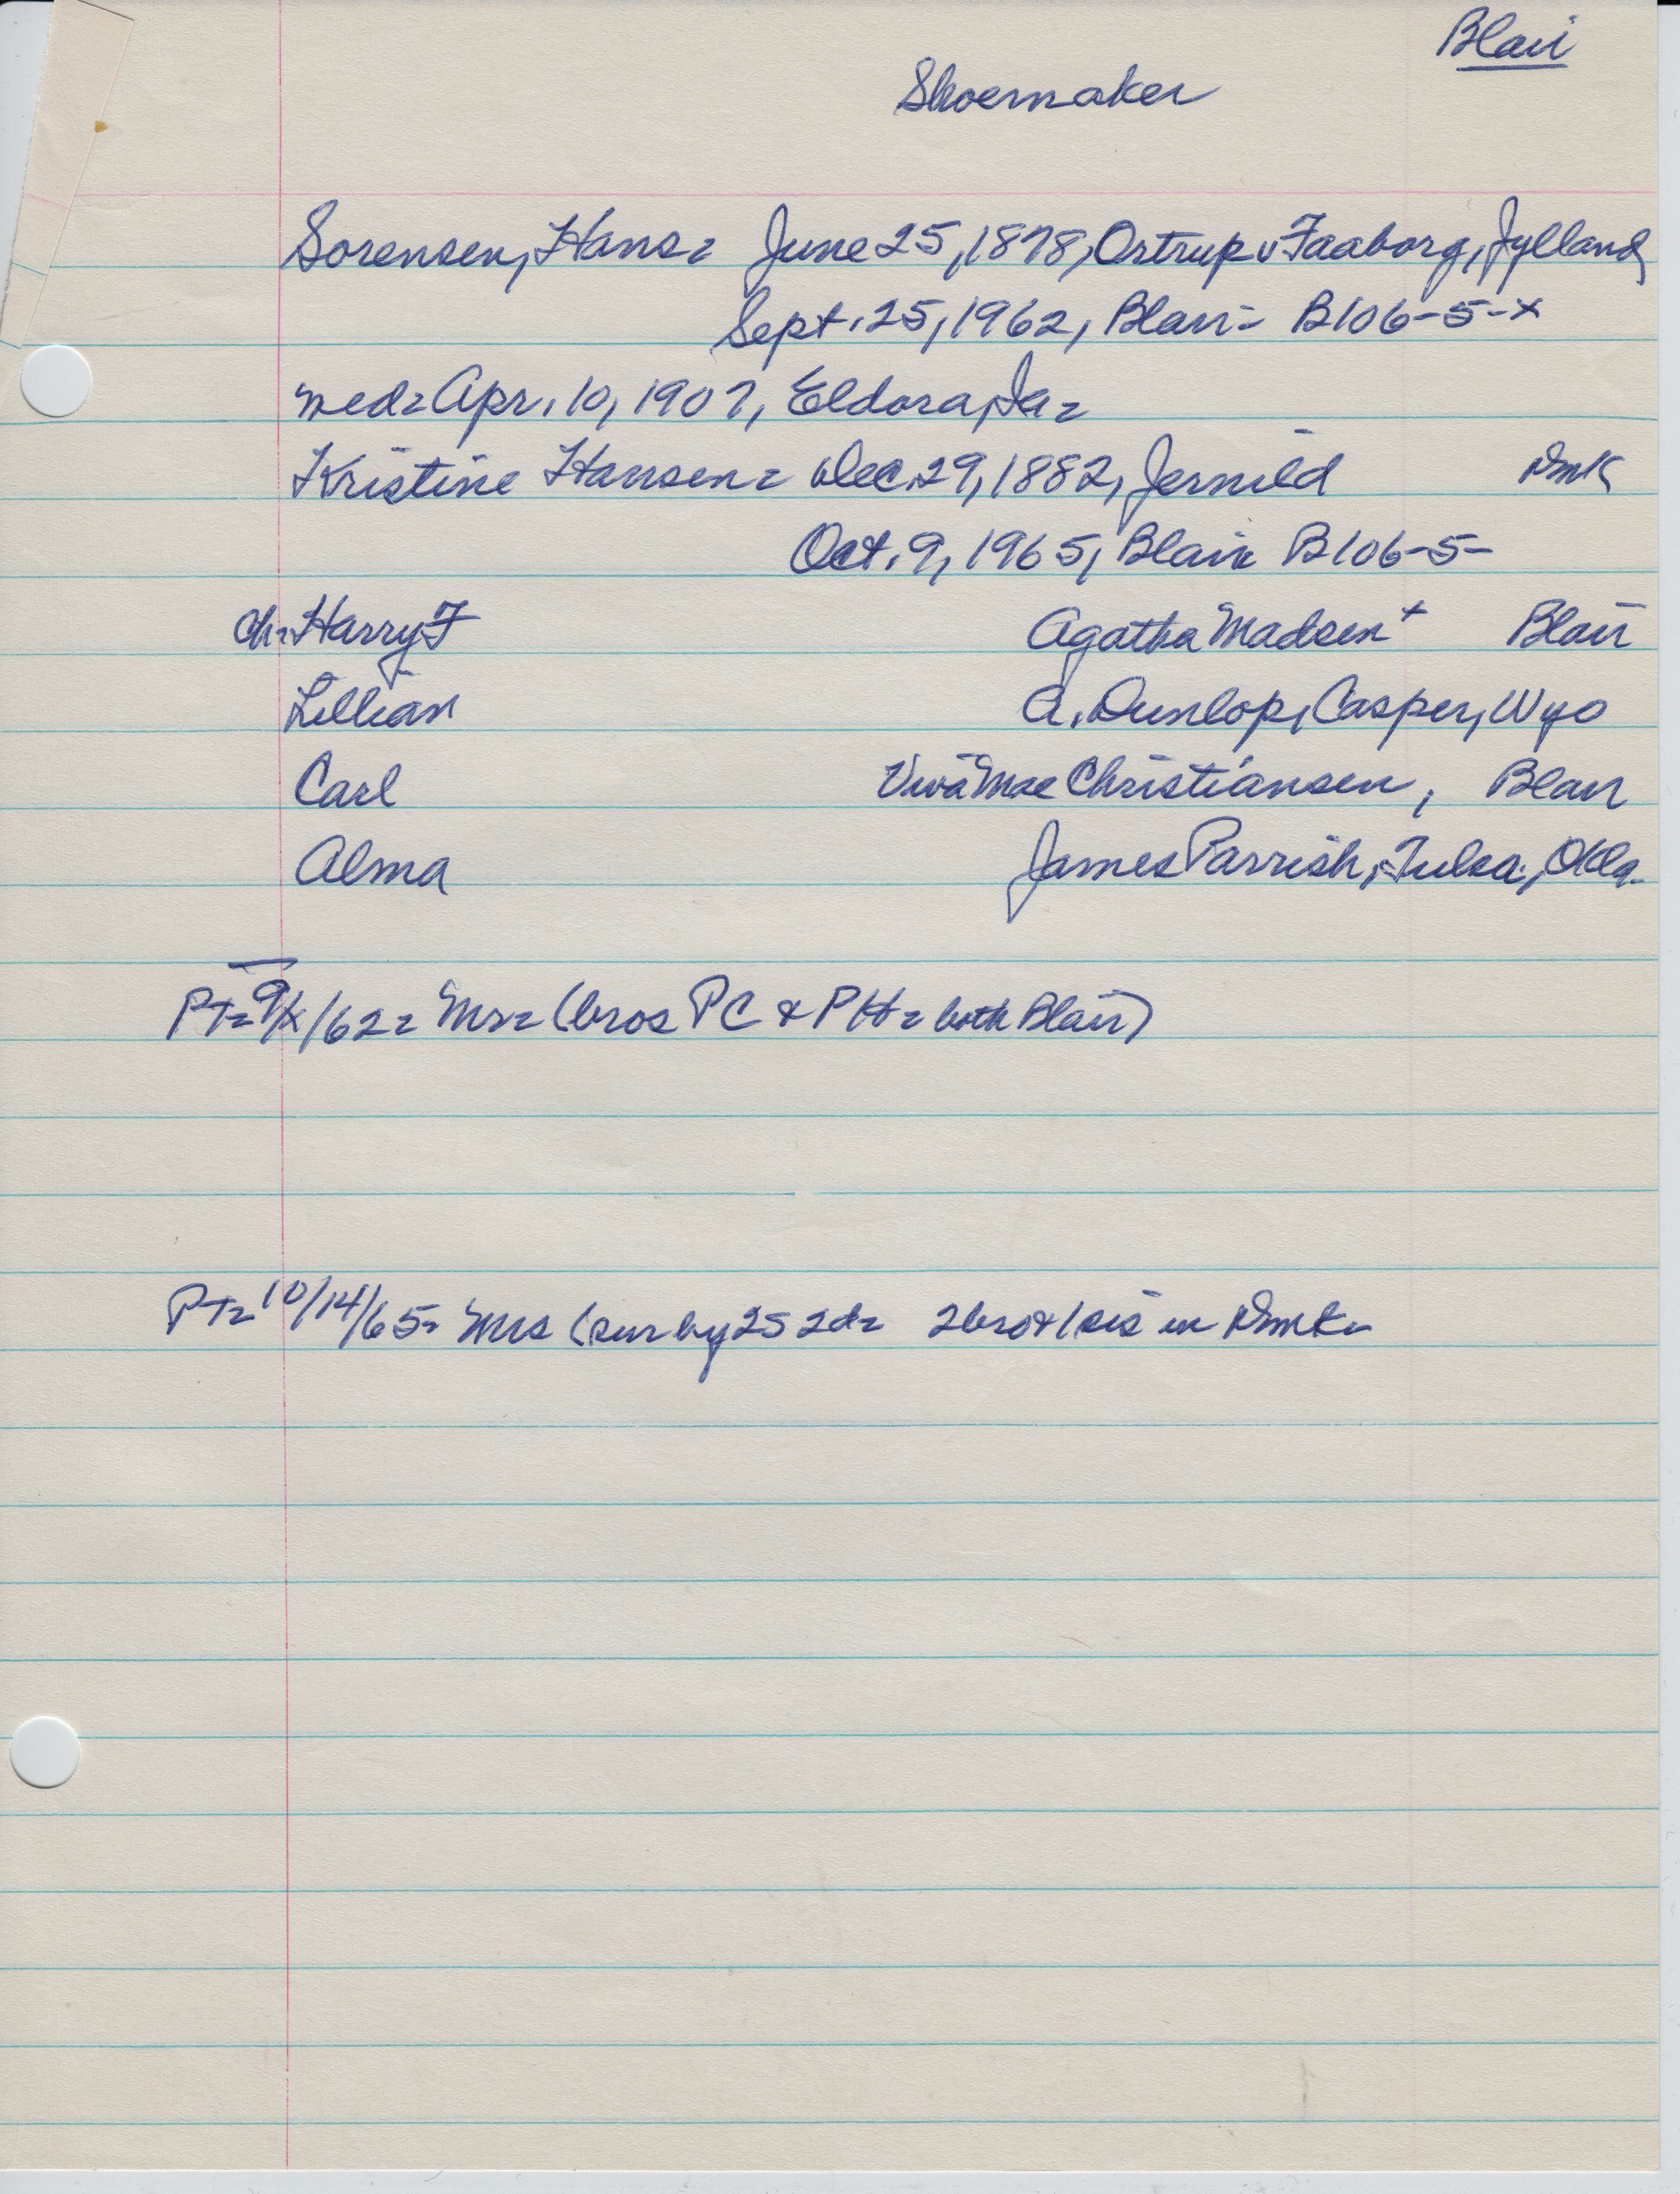 Blair
Shoemaker
Sorensen, Hans= June 25, 1878, Ostrup v Faaborg, Jylland
Sept. 25, 1962, Blair= B106-5-x
med= Apr. 10, 1907, Eldora, Ia=
Kristine Hansen= Dec. 29, 1882, Jernild Dmk
Oct. 9, 1965, Blair B106-5-
ch= Harry F Agatha Madsen+ Blair
Lillian A. Dunlop, Casper, Wyo
Carl Viva Mae Christiansen, Blair
Alma James Parrish, Tulsa, Okla.
PT= 9/x/62= Mr= (bros PC & PH= both Blair)
PT= 10/14/65= Mrs (sur by 2S 2d= 2 bro & 1 sis in Dmk=